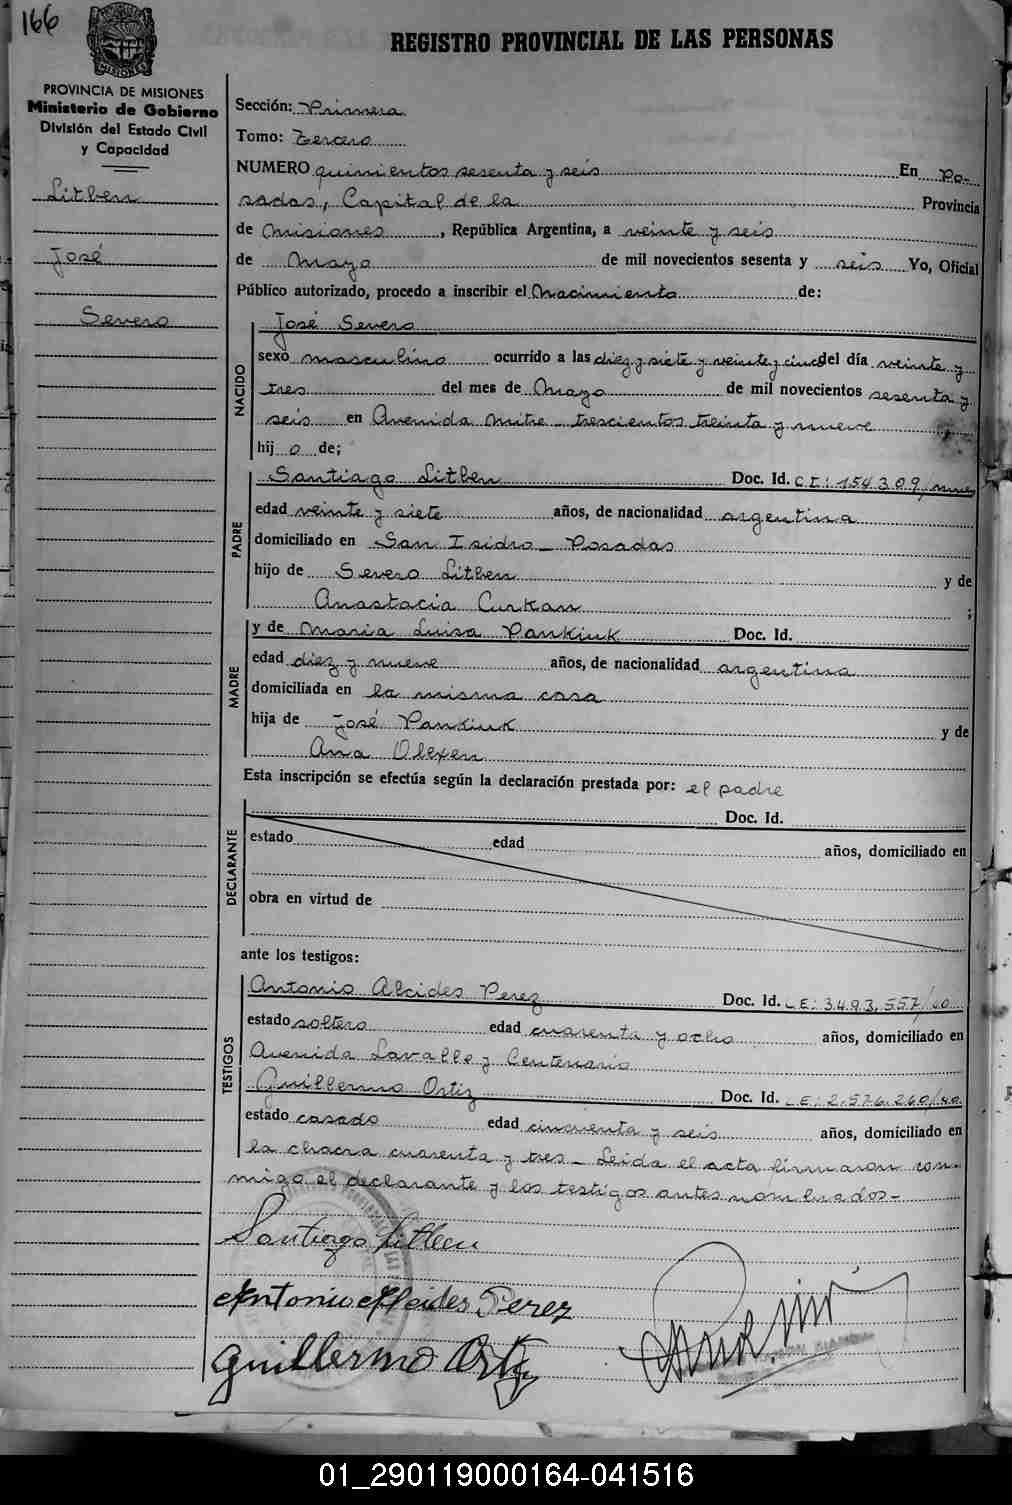 166
REGISTRO PROVINCIAL DE LAS PERSONAS
MISIONES
PROVINCIA DE MISIONES
Ministerio de Gobierno
División del Estado Civil
y Capacidad
Litben
José
Severo
Sección: Primera
Tomo: Tercero
NUMERO quinientos sesenta y seis En Po-
sadas, Capital de la Provincia
de Misiones, República Argentina, a veinte y seis
de Mayo de mil novecientos sesenta y seis Yo, Oficial
Público autorizado, procedo a inscribir el Nacimiento de:
NACIDO
José Severo
sexo masculino ocurrido a las diez y siete y veinte y cinco del día veinte y
tres del mes de Mayo de mil novecientos sesenta y
seis en Avenida Mitre trescientos treinta y nueve
hij o de;
PADRE
Santiago Litben Doc. Id. C I: 154309,
edad veinte y siete años, de nacionalidad argentina
domiciliado en San Isidro - Posadas
hijo de Severo Litben y de
Anastacia Curkan ;
MADRE
y de Maria Luisa Pankiuk Doc. Id.
edad diez y nueve años, de nacionalidad argentina
domiciliada en la misma casa
hija de José Pankiuk y de
Ana Olexen
Esta inscripción se efectúa según la declaración prestada por: el padre
DECLARANTE
Doc. Id.
estado edad años, domiciliado en
obra en virtud de
ante los testigos:
TESTIGOS
Antonio Alcides Perez Doc. Id. L E: 3.493.557/40
estado soltero edad cuarenta y ocho años, domiciliado en
Avenida Lavalle y Centenario
Guillermo Ortiz Doc. Id. L E: 2.576.260/40
estado casado edad cincuenta y seis años, domiciliado en
la chacra cuarenta y tres - Leida el acta firmaron con-
migo el declarante y los testigos antes nombrados-
Santiago Litben
Antonio Alcides Perez
Guillermo Ortiz
01_290119000164-041516